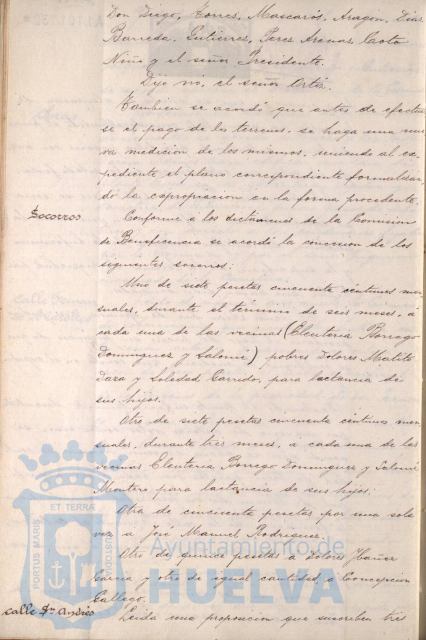 Don Diego, Torres, Mascarós, Aragon, Diaz
Barreda, Gutierrez, Perez Arenas, Coto
Niño y el señor Presidente.
Dijo nó, el señor Ortiz.
Tambien se acordó que antes de efectuar
se el pago de los terrenos, se haga una nue
va medicion de los mismos, uniendo al ex
pediente el plano correspondiente formalizan
do la expropiacion en la forma procedente.
Socorros
Conforme a los dictámenes de la Comision
de Beneficencia se acordó la concesion de los
siguientes socorros:
Uno de siete pesetas cincuenta céntimos men
suales, durante el término de seis meses, á
cada una de las vecinas (Eleuteria Borrego
Dominguez y Salomé) pobres Dolores
Daza y Soledad Garrido, para lactancia de
sus hijos.
Otro de siete pesetas cincuenta céntimos men
suales, durante tres meses, á cada una de las
vecinas Eleuteria Borrego Dominguez y Salomé
Montero para lactancia de sus hijos.
Otra de cincuenta pesetas por una sola
vez a José Manuel Rodriguez.
Otro de quince pesetas á Dolores Ibañez
Garcia y otro de igual cantidad, á Concepcion
Gallego.
calle Sn. Andrés
Leida una proposicion que suscriben tres
PORTUS MARIS ET TERRAE CUSTODIA
Ayuntamiento de
HUELVA